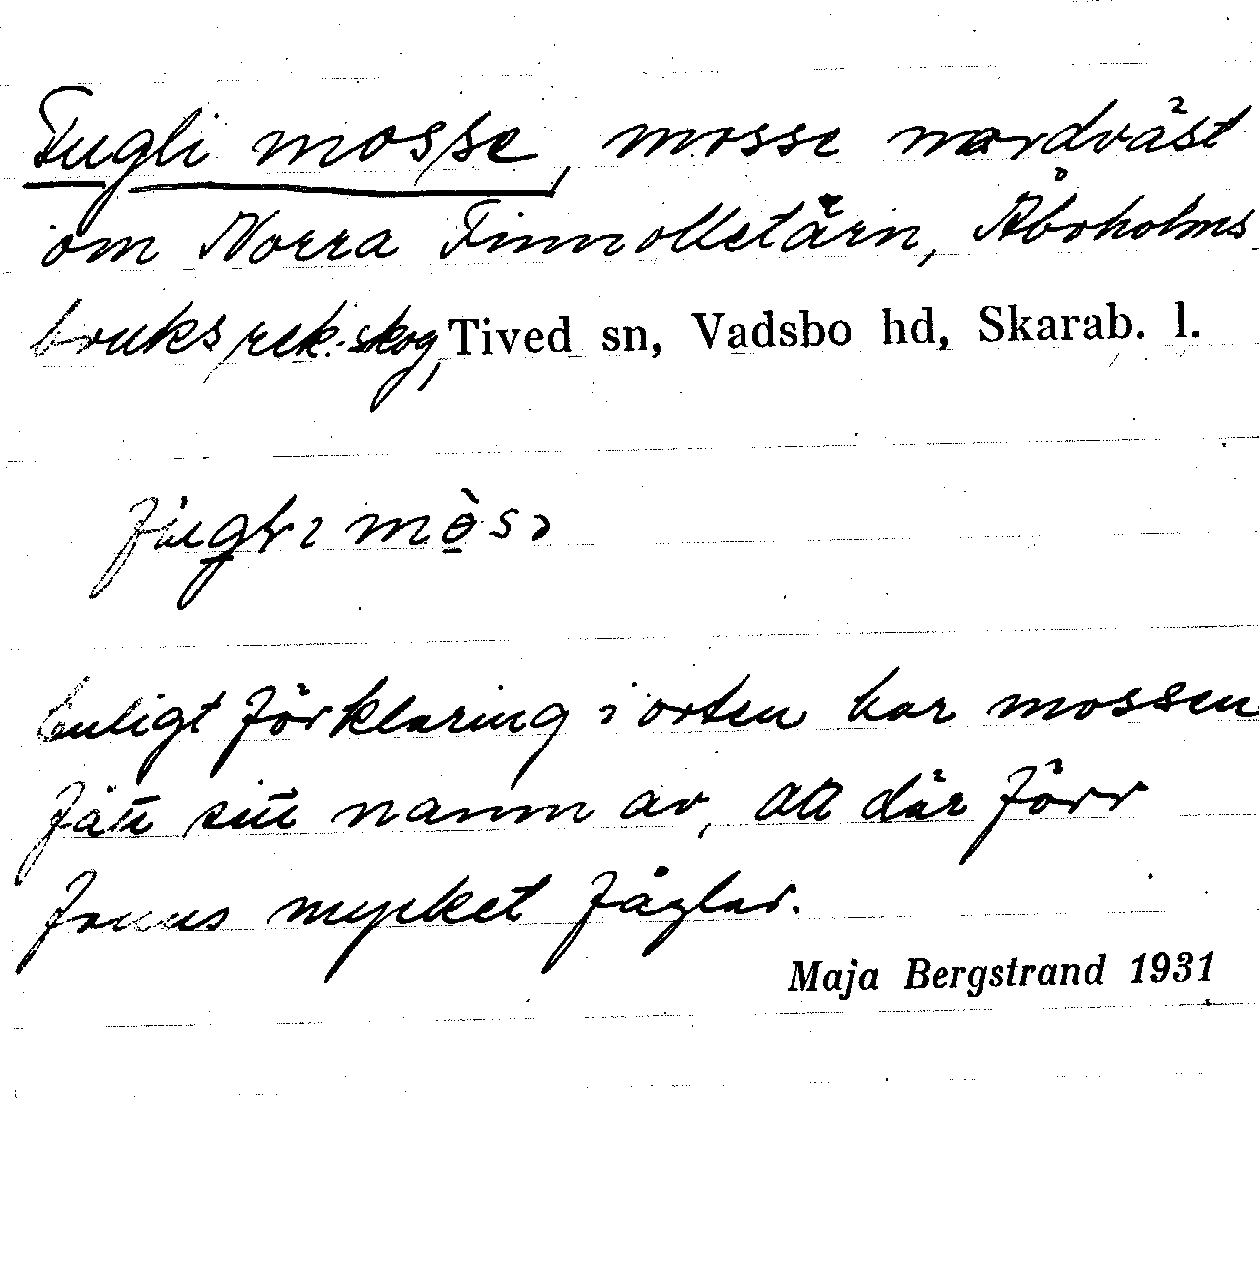 Fugli mosse, mosse nordväst
om Norra Finnolletärn, Åboholms
bruks rek. skog, Tived sn, Vadsbo hd, Skarab. l.
Enligt förklaring i orten har mossen
fått sitt namn av, att där förr
funnits mycket fåglar.
Maja Bergstrand 1931